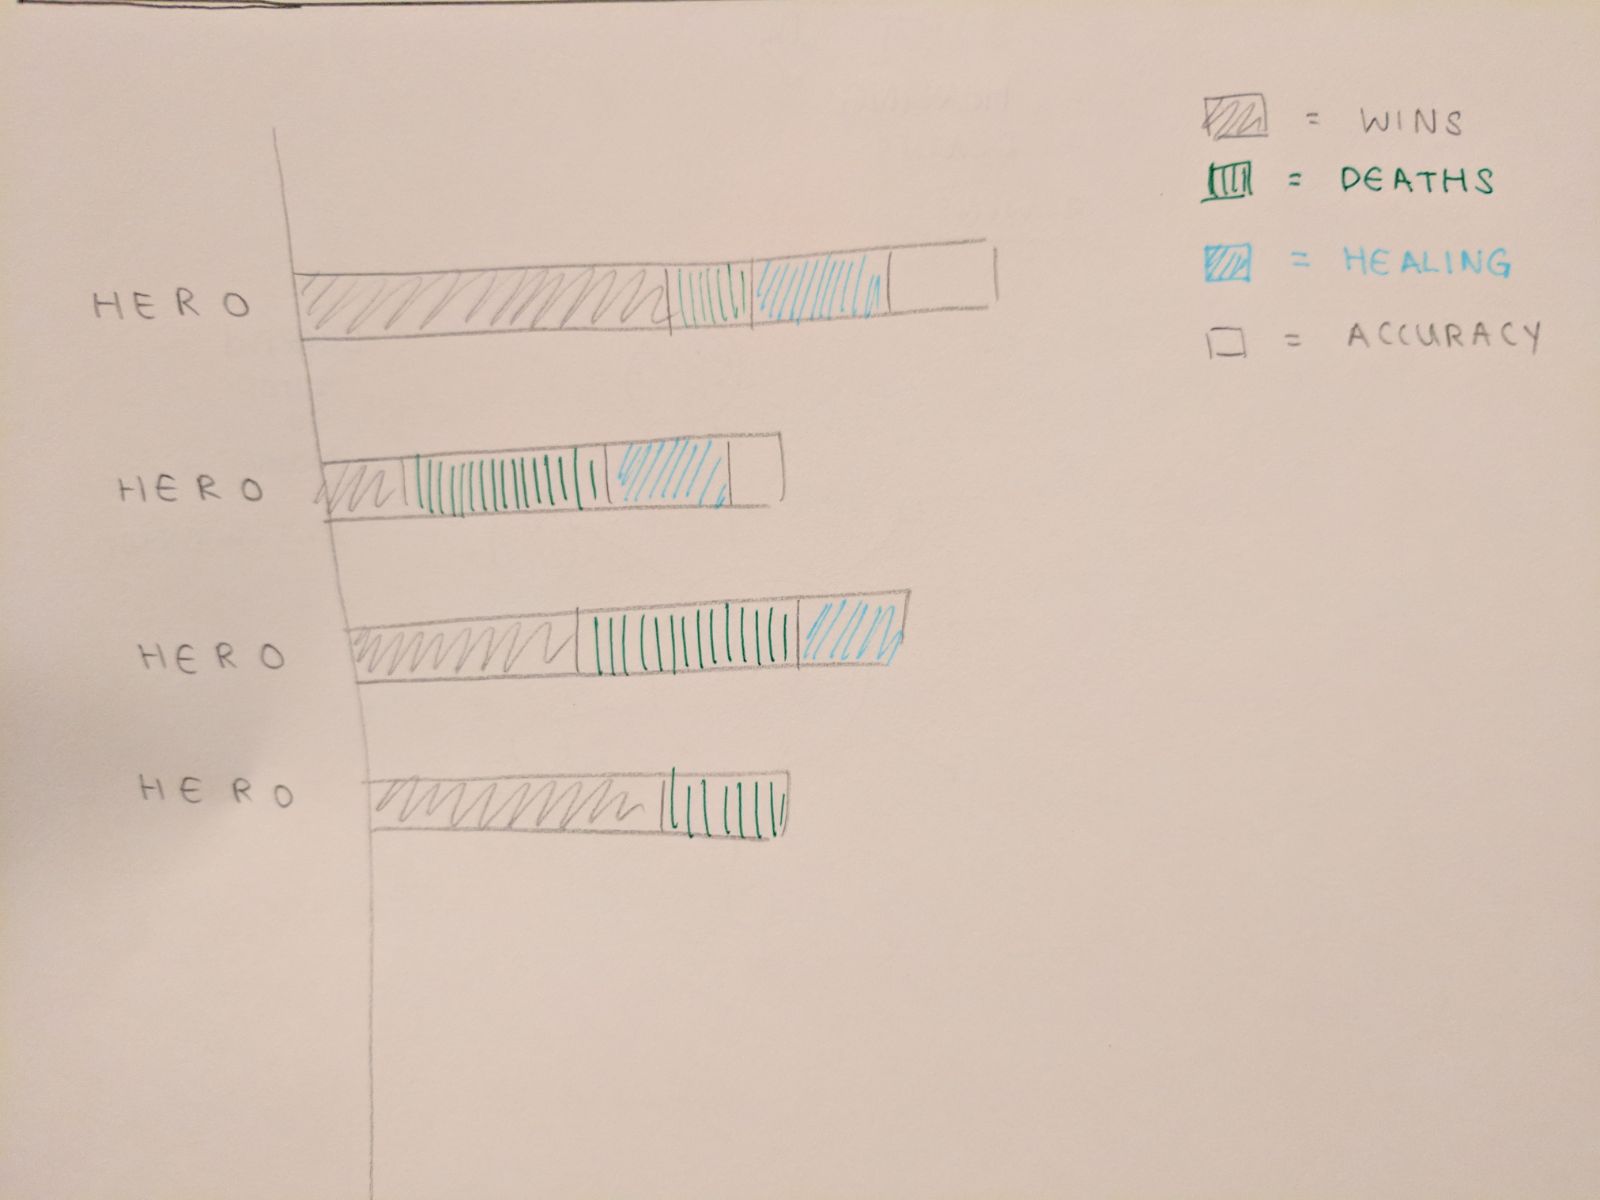 = WINS
= DEATHS
= HEALING
= ACCURACY
HERO
HERO
HERO
HERO